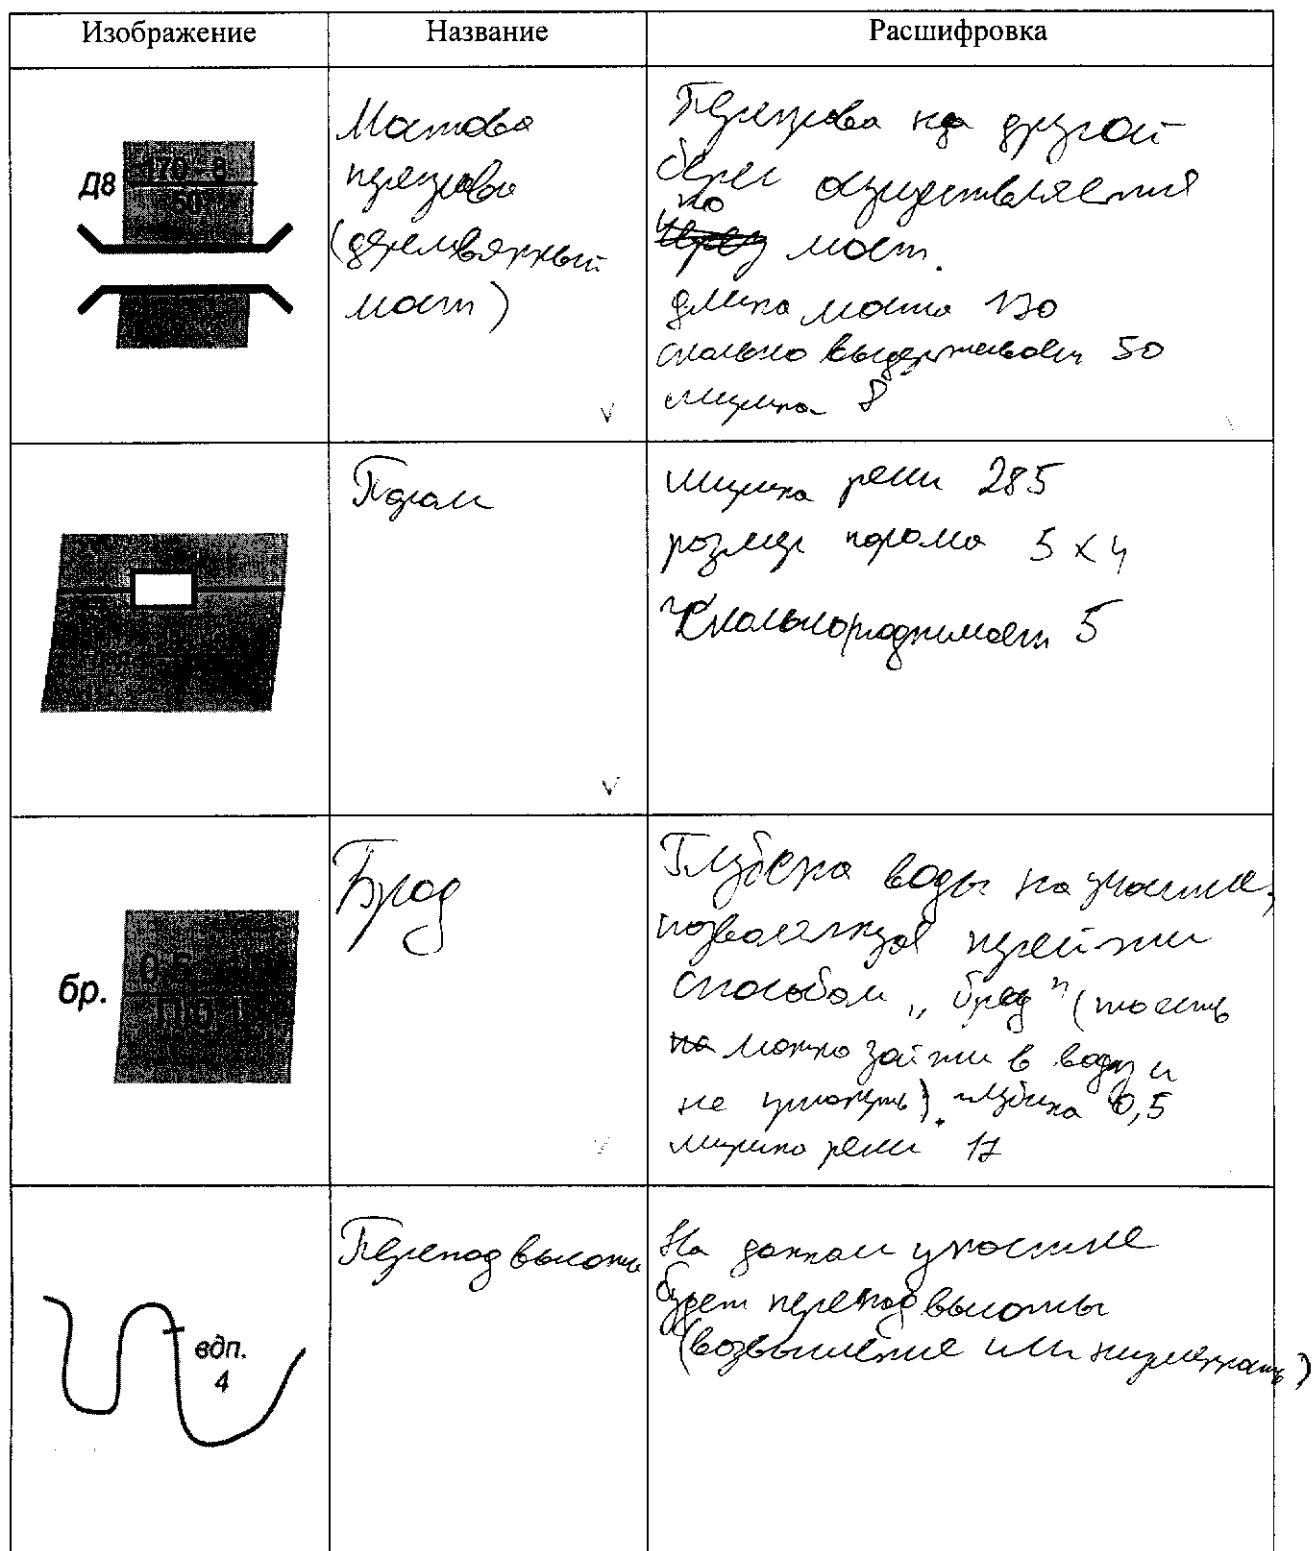 Изображение
Название
Расшифровка
Д8
170-8
60
Мостова
переправа
(деревянный
мост)
Переправа на другой
берег осуществляется
по
через мост.
длина моста 170
сколько выдерживает 50
ширина 8
Паром
ширина реки 285
розмер парома 5 х 4
5
бр.
0,5
Брод
Глубена воды на участке,
позволяющая перейти
способом „брод" (тоесть
на можно зайти в воду и
не утонуть). глубина 0,5
ширина реки 17
вдп.
4
Перепад высоты
На данном участке
будет перепад высоты
(возвышение или низменность)